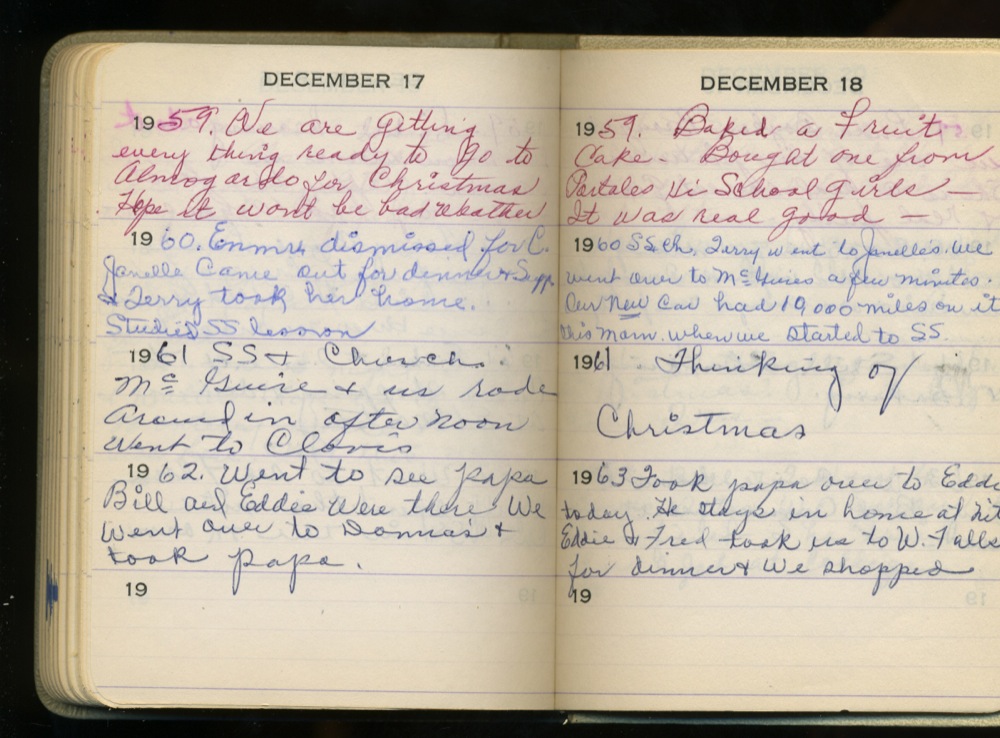 DECEMBER 17
1959. We are getting
every thing ready to go to
Almogardo for Christmas
Hope it wont be bad weather
1960. dismissed for C.
Janelle Came out for dinner & Supp.
& Terry took her home.
Studied SS lesson
1961 SS & Church.
Mc Guire & us rode
Around in after noon
Went to Clovis
1962. Went to see papa
Bill and Eddie Were there We
Went over to Donna's &
took papa.
19
DECEMBER 18
1959. Baked a Fruit
Cake. Bought one from
Portales Hi School girls —
It was real good —
1960 SS & Ch. Terry went to Janelle's. We
went over to Mc Guires a few minutes.
Our New Car had 19,000 miles on it
this morn. when we started to SS.
1961. Thinking of
Christmas
1963 Took papa over to Eddi
today. He stays in home at
Eddie & Fred took us to W. Falls
for dinner & We shopped
19